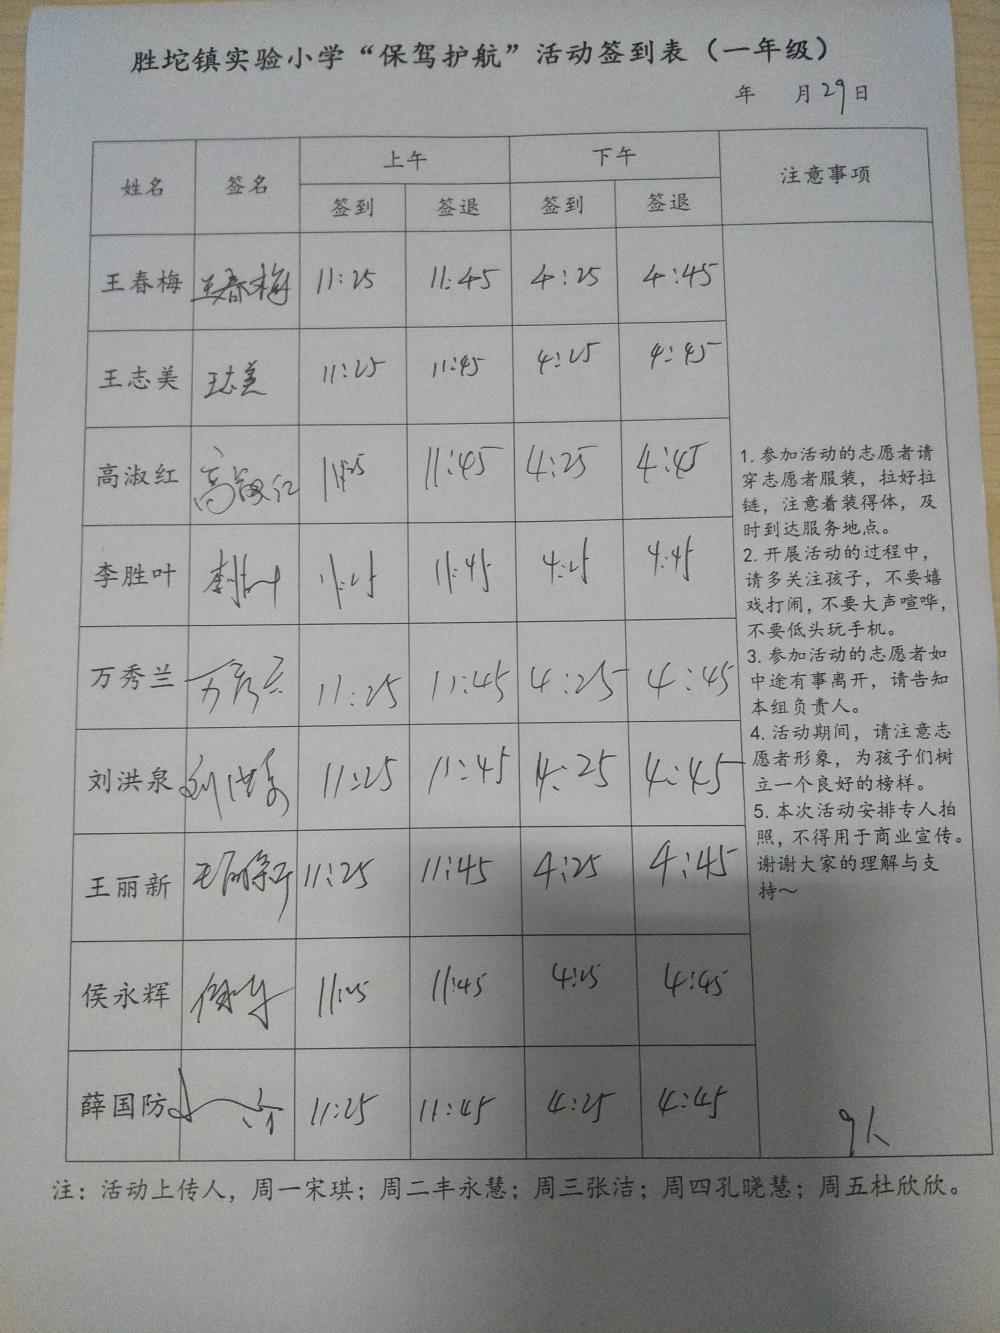 胜坨镇实验小学“保驾护航”活动签到表（一年级）
年 月29日
姓名 签名 上午 下午 注意事项
签到 签退 签到 签退
王春梅 王春梅 11:25 11:45 4:25 4:45
王志美 王志美 11:25 11:45 4:25 4:45
高淑红 高淑红 11:25 11:45 4:25 4:45
李胜叶 11:25 11:45 4:25 4:45
万秀兰 万秀兰 11:25 11:45 4:25 4:45
刘洪泉 刘洪泉 11:25 11:45 4:25 4:45
王丽新 王丽新 11:25 11:45 4:25 4:45
侯永辉 11:25 11:45 4:25 4:45
薛国防 11:25 11:45 4:25 4:45
1. 参加活动的志愿者请
穿志愿者服装，拉好拉
链，注意着装得体，及
时到达服务地点。
2. 开展活动的过程中，
请多关注孩子，不要嬉
戏打闹，不要大声喧哗，
不要低头玩手机。
3. 参加活动的志愿者如
中途有事离开，请告知
本组负责人。
4. 活动期间，请注意志
愿者形象，为孩子们树
立一个良好的榜样。
5. 本次活动安排专人拍
照，不得用于商业宣传。
谢谢大家的理解与支
持～
9人
注：活动上传人，周一宋琪；周二丰永慧；周三张洁；周四孔晓慧；周五杜欣欣。